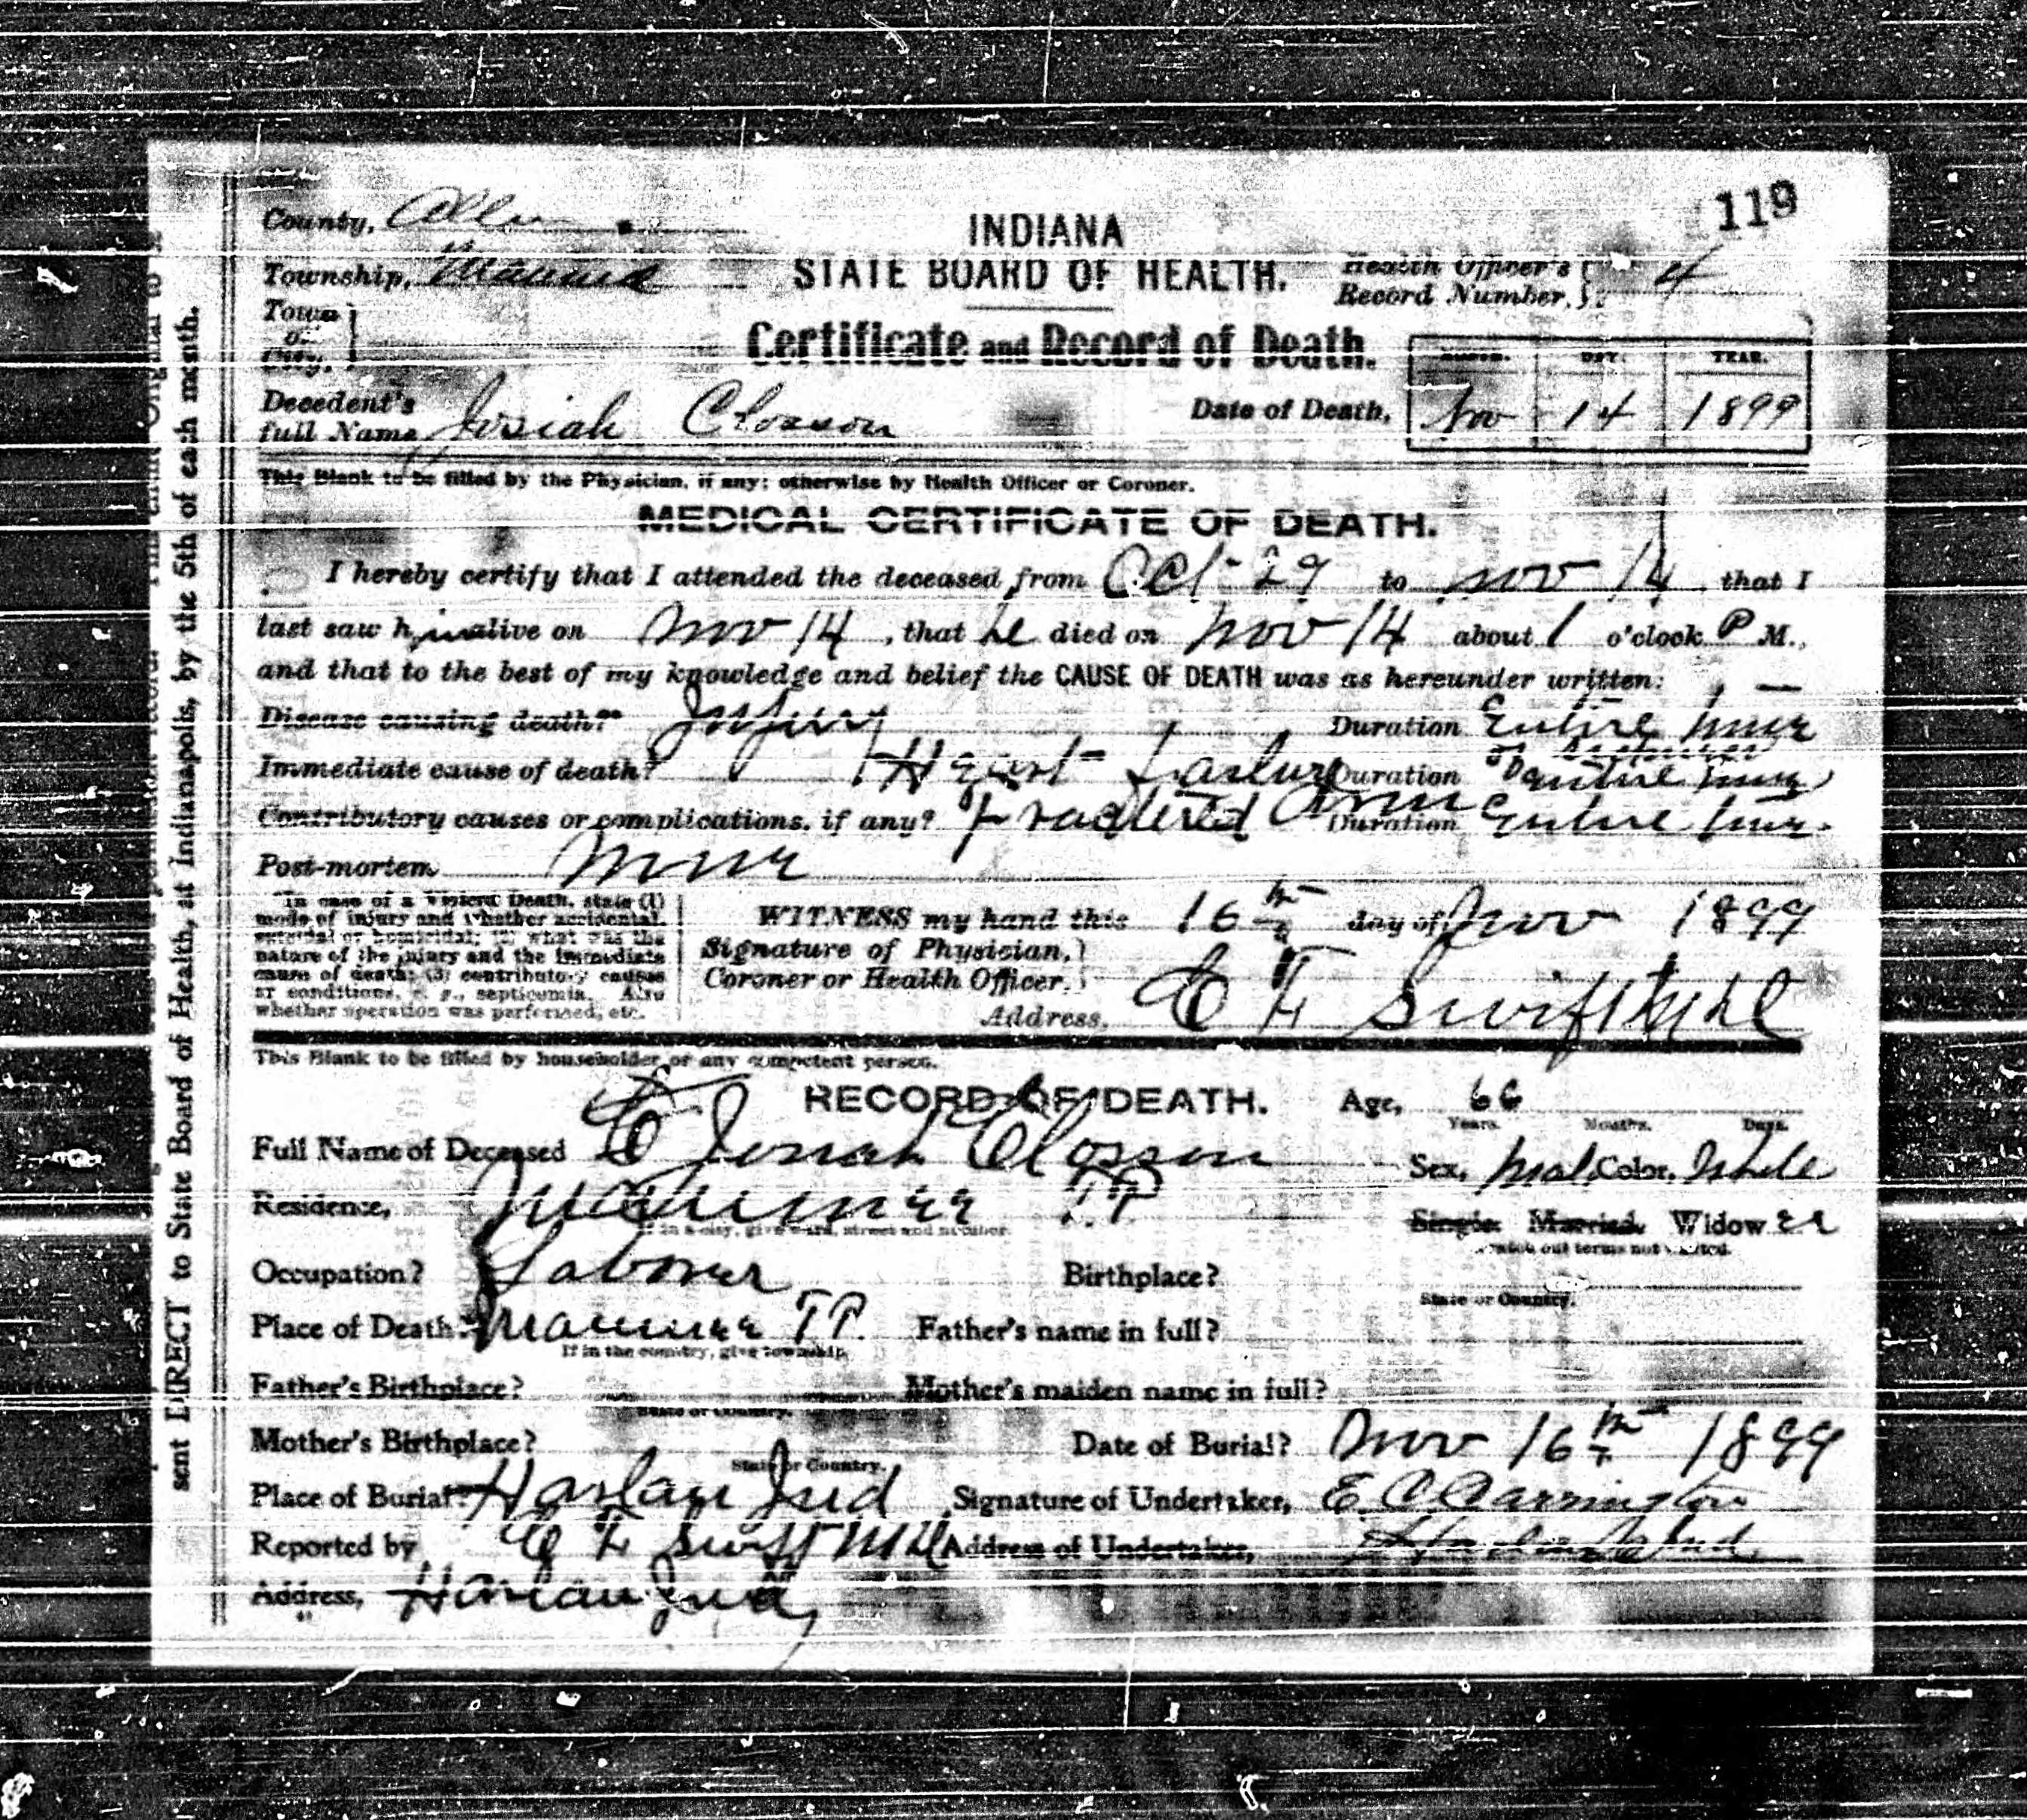 119
County, Allen
INDIANA
Township, Maumee
STATE BOARD OF HEALTH.
Health Officer's
Record Number. 4
Town
or
City.
Certificate and Record of Death.
MONTH. DAY. YEAR.
Decedent's
full Name Josiah Closson
Date of Death, Nov 14 1899
This Blank to be filled by the Physician, if any; otherwise by Health Officer or Coroner.
MEDICAL CERTIFICATE OF DEATH.
I hereby certify that I attended the deceased from Oct 29 to Nov 14, that I
last saw him alive on Nov 14, that he died on Nov 14 about 1 o'clock P M.,
and that to the best of my knowledge and belief the CAUSE OF DEATH was as hereunder written:
Disease causing death? Injury Duration Entire
Immediate cause of death? Heart failure Duration
Contributory causes or complications, if any? Fractured Arm Duration Entire
Post-mortem
In case of a Violent Death, state (1)
mode of injury and whether accidental,
suicidal or homicidal; (2) what was the
nature of the injury and the immediate
cause of death; (3) contributory causes
or conditions, e. g., septicemia. Also
whether operation was performed, etc.
WITNESS my hand this 16th day of Nov 1899
Signature of Physician,
Coroner or Health Officer. E F Swift M D
Address,
This Blank to be filled by householder or any competent person.
RECORD OF DEATH.
Age, 66
Years. Months. Days.
Full Name of Deceased Josiah Closson
Sex, Male Color, White
Residence, Maumee TP
If in a city, give ward, street and number.
Single. Married. Widower
Scratch out terms not wanted.
Occupation? Laborer Birthplace?
State or Country.
Place of Death? Maumee TP. Father's name in full?
If in the country, give township.
Father's Birthplace? Mother's maiden name in full?
State or Country.
Mother's Birthplace? Date of Burial? Nov 16th 1899
State or Country.
Place of Burial? Harlan Ind Signature of Undertaker, E. C. Carrington
Reported by E F Swift M D Address of Undertaker, Harlan Ind
Address, Harlan Ind
sent DIRECT to State Board of Health, at Indianapolis, by the 5th of each month.